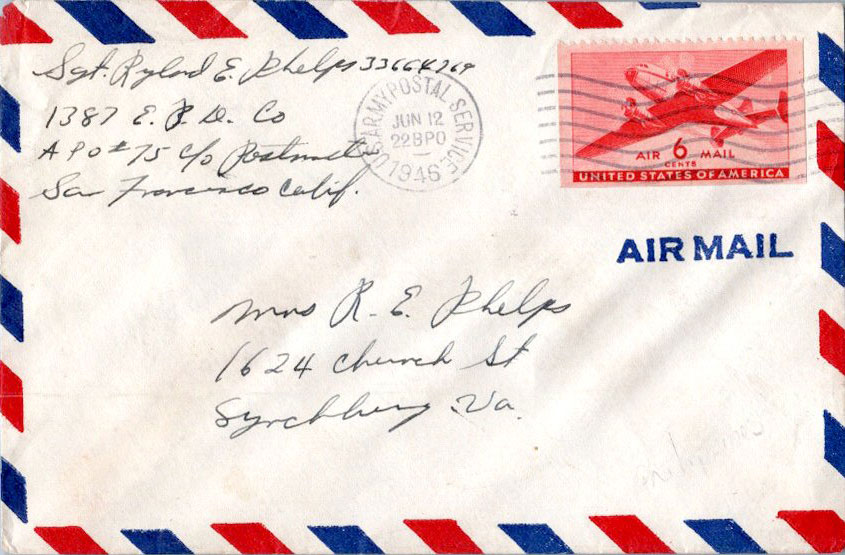 Sgt. Ryland E. Phelps 33664769
1387 E. P. D. Co
APO # 75 c/o Postmst
San Francisco Calif.
U.S. ARMY POSTAL SERVICE
JUN 12
22BPO
1946
AIR 6 MAIL
CENTS
UNITED STATES OF AMERICA
AIR MAIL
Mrs R. E. Phelps
1624 Church St
Lynchburg Va.